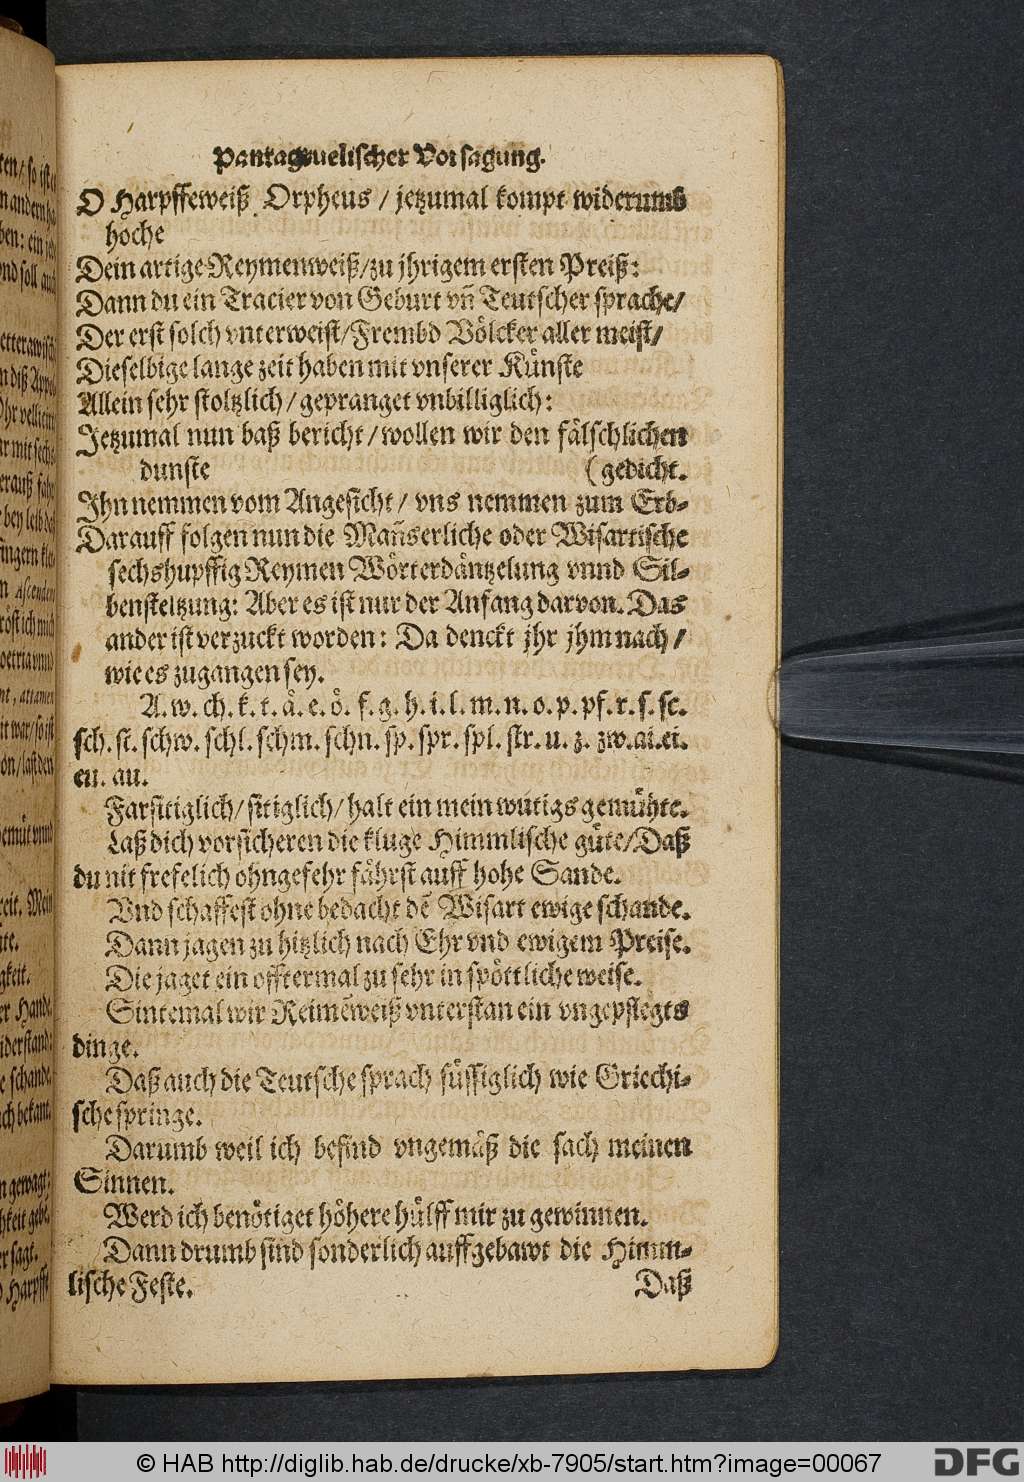 Pantagruelischer Vorsagung.
O Harpffeweiß Orpheus / jetzumal kompt widerumb
hoche
Dein artige Reymenweiß/zu jhrigem ersten Preiß:
Dann du ein Tracier von Geburt vñ Teutscher sprache/
Der erst solch vnterweist/Frembd Völcker aller meist/
Dieselbige lange zeit haben mit vnserer Künste
Allein sehr stoltzlich / gepranget vnbilliglich:
Jetzumal nun baß bericht / wollen wir den fälschlichen
dunste (gedicht.
Ihn nemmen vom Angesicht / vns nemmen zum Erb-
Darauff folgen nun die Mañserliche oder Wisartische
sechshupffig Reymen Wörterdäntzelung vnnd Sil-
bensteltzung: Aber es ist nur der Anfang darvon. Das
ander ist verzuckt worden: Da denckt jhr jhm nach /
wie es zugangen sey.
A. w. ch. k. t. ä. e. ö. f. g. h. i. l. m. n. o. p. pf. r. s. sc.
sch. st. schw. schl. schm. schn. sp. spr. spl. str. u. z. zw. ai. ei.
eu. au.
Farsitiglich/ sitiglich/ halt ein mein wütigs gemühte.
Laß dich vorsicheren die kluge Himmlische güte/Daß
du nit frefelich ohngefehr fährst auff hohe Sande.
Vnd schaffest ohne bedacht dẽ Wisart ewige schande.
Dann jagen zu hitzlich nach Ehr vnd ewigem Preise.
Die jaget ein offtermal zu sehr in spöttliche weise.
Sintemal wir Reimẽweiß vnterstan ein vngepflegts
dinge.
Daß auch die Teutsche sprach süssiglich wie Griechi-
sche springe.
Darumb weil ich befind vngemäß die sach meinen
Sinnen.
Werd ich benötiget höhere hülff mir zu gewinnen.
Dann drumb sind sonderlich auffgebawt die Himm-
lische Feste. Daß
© HAB http://diglib.hab.de/drucke/xb-7905/start.htm?image=00067
DFG